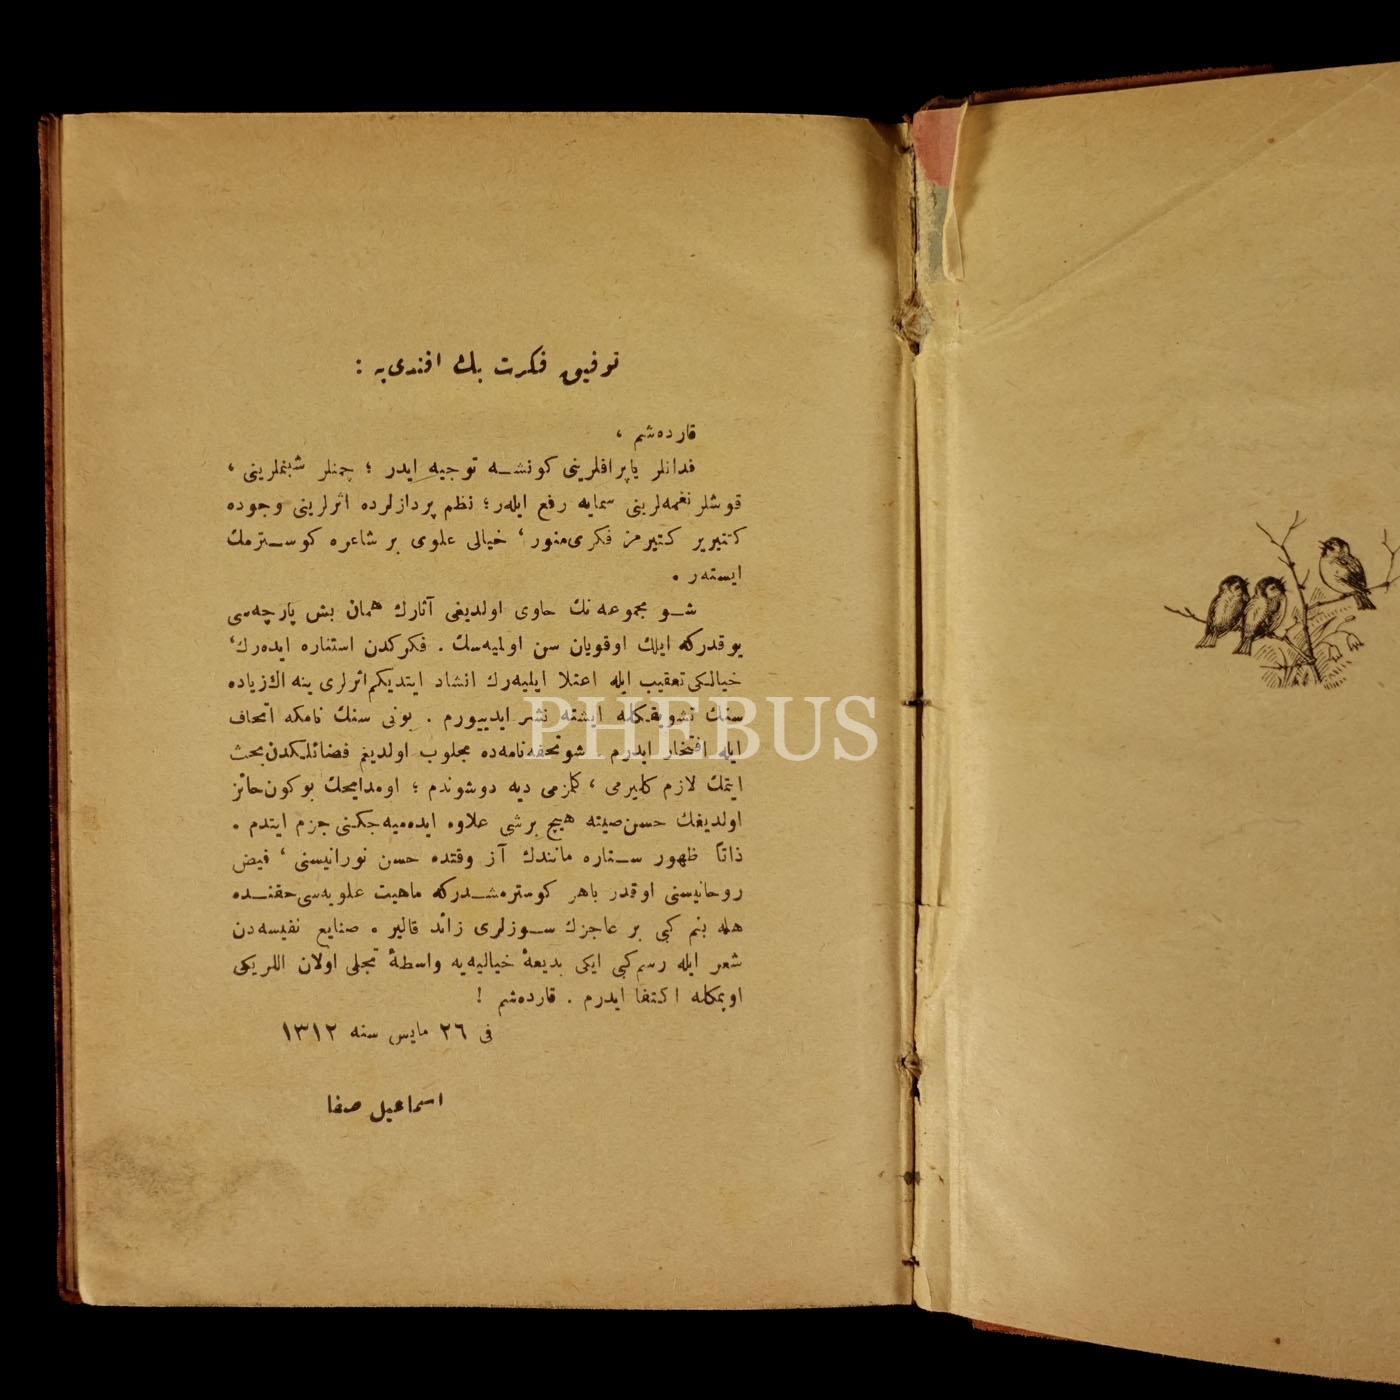 توفیق فکرت بك افندی‌یه :
قارده‌شم ،
فدانلر یاپراقلرینی کونشـه توجیه ایدر ؛ چمنلر شبنملرینی ،
قوشلر نغمه‌لرینی سمایه رفع ایلەر؛ نظم پردازلرده اثرلرینی وجوده
کتیریر کتیرمز فکری منور ، خیالی علوی بر شاعره کوسـترمك
ایسته‌ر .
شـو مجموعه‌نك حاوی اولدیغی آثارك همان بش پارچه‌سی
یوقدرکه ایلك اوقویان سن اولمیه‌سك . فکرکدن استناره ایده‌رك،
خیالکی تعقیب ایله اعتلا ایلیه‌رك انشاد ایتدیکم اثرلری ینه اك زیاده
سنك تشویقکله ایشته نشر ایدییورم . بونی سنك نامکه اتحاف
ایله افتخار ایدرم شو تحفه‌نامه‌ده مجلوب اولدیغم فضائلکدن بحث
ایتمك لازم کلیرمی ، کلزمی دیه دوشوندم ؛ او مدایحك بوکون حائز
اولدیغك حسن صیته هیچ برشی علاوه ایده‌میه‌جکنی جزم ایتدم .
ذاتاً ظهور سـتاره مانندك آز وقتده حسن نورانیسنی ، فیض
روحانیسنی اوقدر باهر کوسترمشـدرکه ماهیت علویه‌سی حقنـده
هله بنم کبی بر عاجزك سـوزلری زائد قالیر . صنایع نفیسه‌دن
شعر ایله رسم کبی ایکی بدیعهٔ خیالیه‌یه واسطهٔ تجلی اولان اللریکی
اوپمکله اکتفا ایدرم . قارده‌شم !
فی ٢٦ مایس سنه ١٣١٢
اسماعیل صفا
PHEBUS